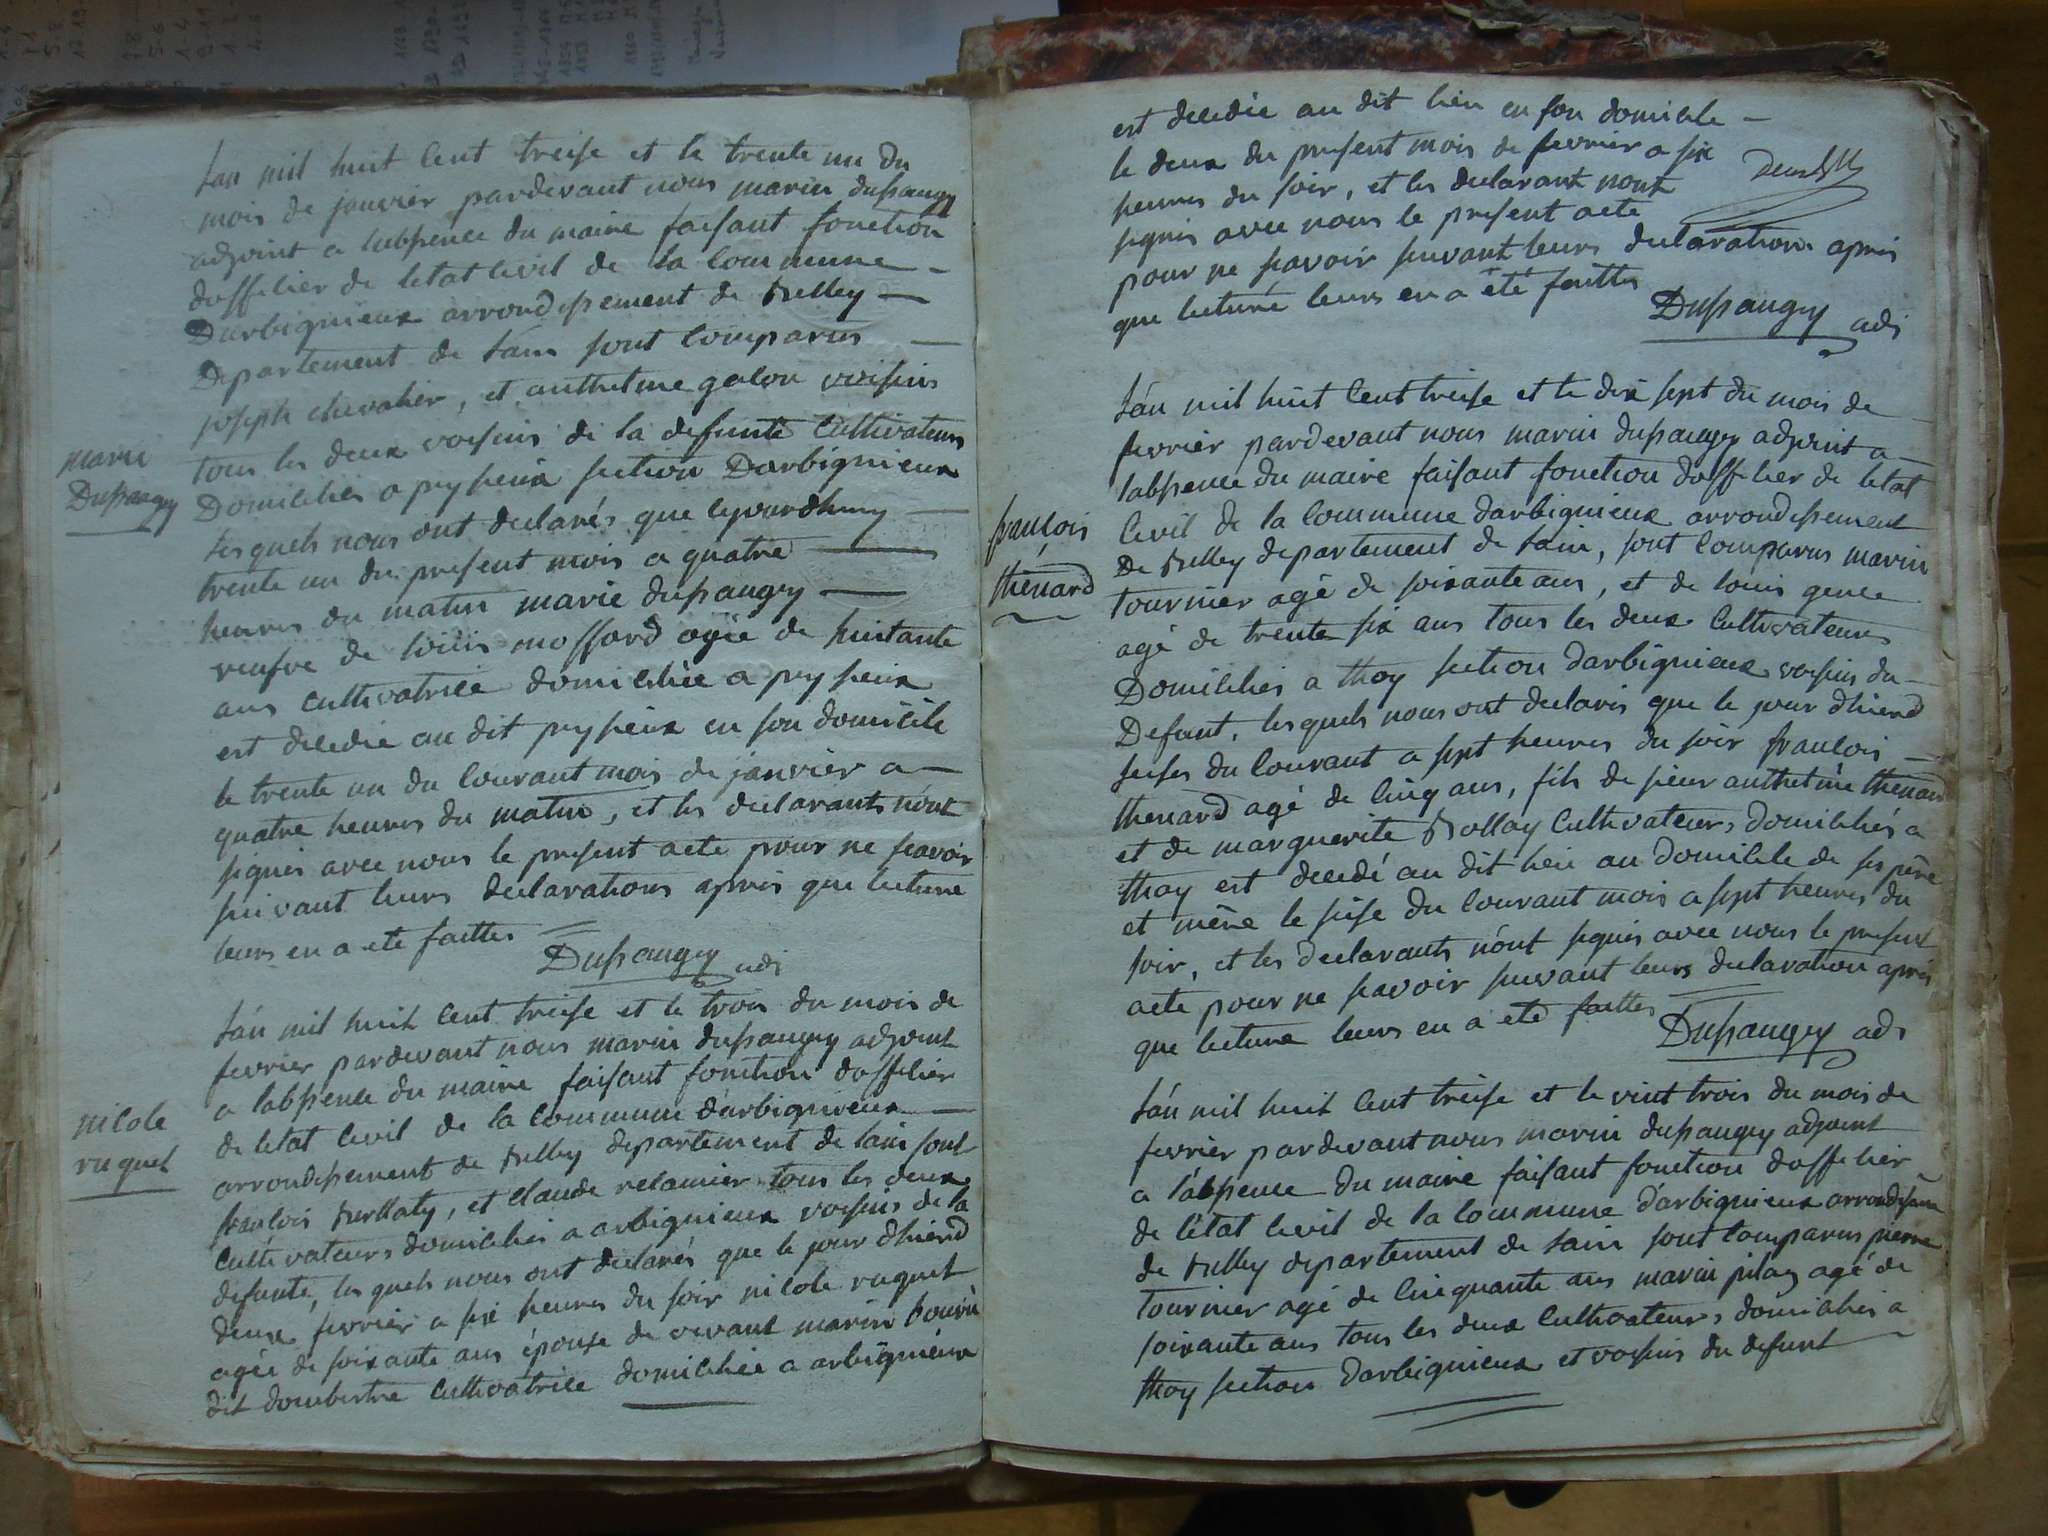 marie
Dupraugey
Lan mil huit Cent treise et le trente un du
mois de janvier pardevant nous marin dusaugey
adjoint a labsence du maire faisant fonction
dofficier de letat Civil de la Commune
Darbignieux arrondissement de belley
Département de Lain sont Comparus
joseph chevalier, et anthelme galon voisins
tous les deux voisins de la defunte Cultivateurs
Domicilies a peyzieux section Darbignieux
lesquels nous ont declarés que cejourdhuy
trente un du present mois a quatre
heures du matin marie dusaugey
veufve de louis moffard agée de huitante
ans Cultivatrice domiciliée a peyzieux
est decedée au dit peyzieux en son domicile
le trente un du Courant mois de janvier a
quatre heures du matin, et les declarants nont
signés avec nous le present acte pour ne scavoir
suivant leurs declarations apres que lecture
leurs en a ete faittes
Dusaugey adj
nicole
ruquet
Lan mil huit Cent treise et le trois du mois de
fevrier pardevant nous marin dusaugey adjoint
a labsence du maire faisant fonction dofficier
de letat Civil de la Commune darbignieux
arrondissement de belley departement de lain sont
françois berlioty, et Claude velamier tous les deux
Cultivateurs domicilies a arbignieux voisins de la
defunte, lesquels nous ont declarés que le jour dhierd
deux fevrier a six heures du soir nicole ruquet
agée de soixante ans épouse de vivant marin
dit Cultivatrice domiciliée a arbignieux
est decedée au dit lieu en son domicile
le deux du present mois de fevrier a six
heures du soir, et les declarant nont
signés avec nous le present acte
pour ne scavoir suivant leurs declarations apres
que lecture leurs en a été faittes
Dusaugey adj
françois
thenard
Lan mil huit Cent treise et le dix sept du mois de
fevrier pardevant nous marin dusaugey adjoint a
labsence du maire faisant fonction dofficier de letat
Civil de la Commune darbignieux arrondissement
De belley departement de Lain, sont Comparus marin
tournier agé de soixante ans, et de louis genee
agé de trente six ans tous les deux Cultivateurs
Domicilies a thoy section darbignieux voisins du
Defunt, lesquels nous ont declarés que le jour dhierd
seise du Courant a sept heures du soir françois
thenard agé de Cinq ans, fils de sieur anthelme thenard
et de marguerite bollay Cultivateurs domiciliés a
thoy est decedé au dit lieu au domicile de ses père
et mère le seise du Courant mois a sept heures du
soir, et les declarants n'ont signés avec nous le present
acte pour ne scavoir suivant leurs declaration apres
que lecture leurs en a eté faittes
Dusaugey adj
Lan mil huit Cent treise et le vint trois du mois de
fevrier pardevant nous marin dusaugey adjoint
a l'absence du maire faisant fonction dofficier
de létat Civil de la Commune d'arbignieux
de belley departement de Lain sont Comparus pierre
tournier agé de Cinquante ans marin pilaz agé de
soixante ans tous les deux Cultivateurs domicilies a
thoy section darbignieux et voisins du defunt